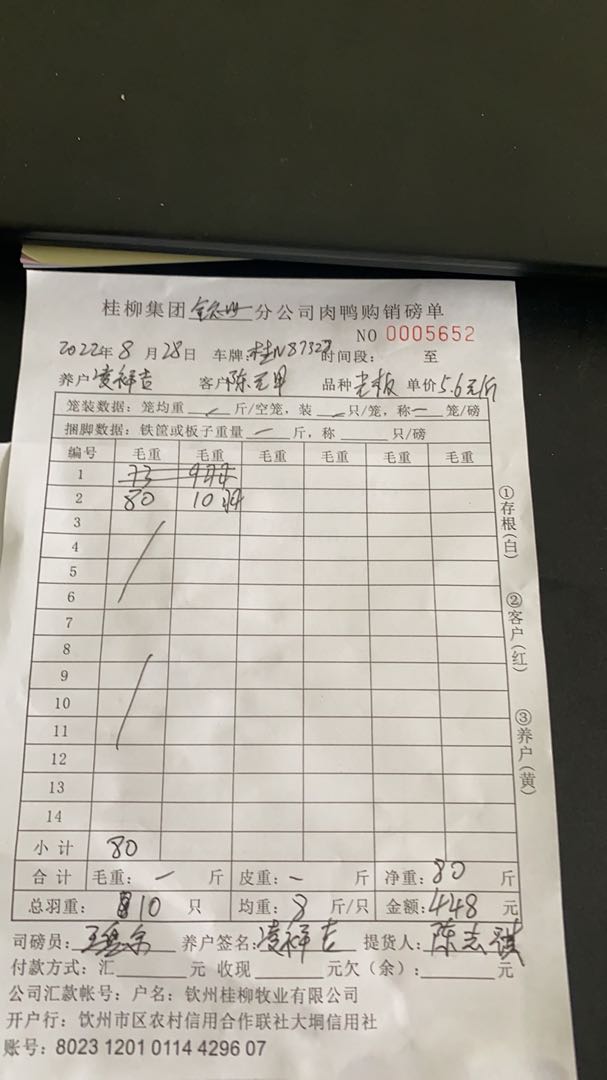 桂柳集团 钦州 分公司肉鸭购销磅单
NO 0005652
2022年8月28日 车牌:桂N87327 时间段: 至
养户 凌祥吉 客户 陈 品种 老板 单价 5.6元/斤
笼装数据：笼均重 斤/空笼，装 只/笼，称 一 笼/磅
捆脚数据：铁筐或板子重量 一 斤，称 只/磅
编号 毛重 毛重 毛重 毛重 毛重 毛重
1 73
2 80 10羽
3
4
5
6
7
8
9
10
11
12
13
14
小计 80
合计 毛重：一 斤 皮重：一 斤 净重：80 斤
总羽重：10 只 均重：8 斤/只 金额：448 元
司磅员： 养户签名：凌祥吉 提货人：陈志
付款方式：汇 元 收现 元欠（余）： 元
公司汇款帐号：户名：钦州桂柳牧业有限公司
开户行：钦州市区农村信用合作联社大垌信用社
账号：8023 1201 0114 4296 07
①存根（白）
②客户（红）
③养户（黄）